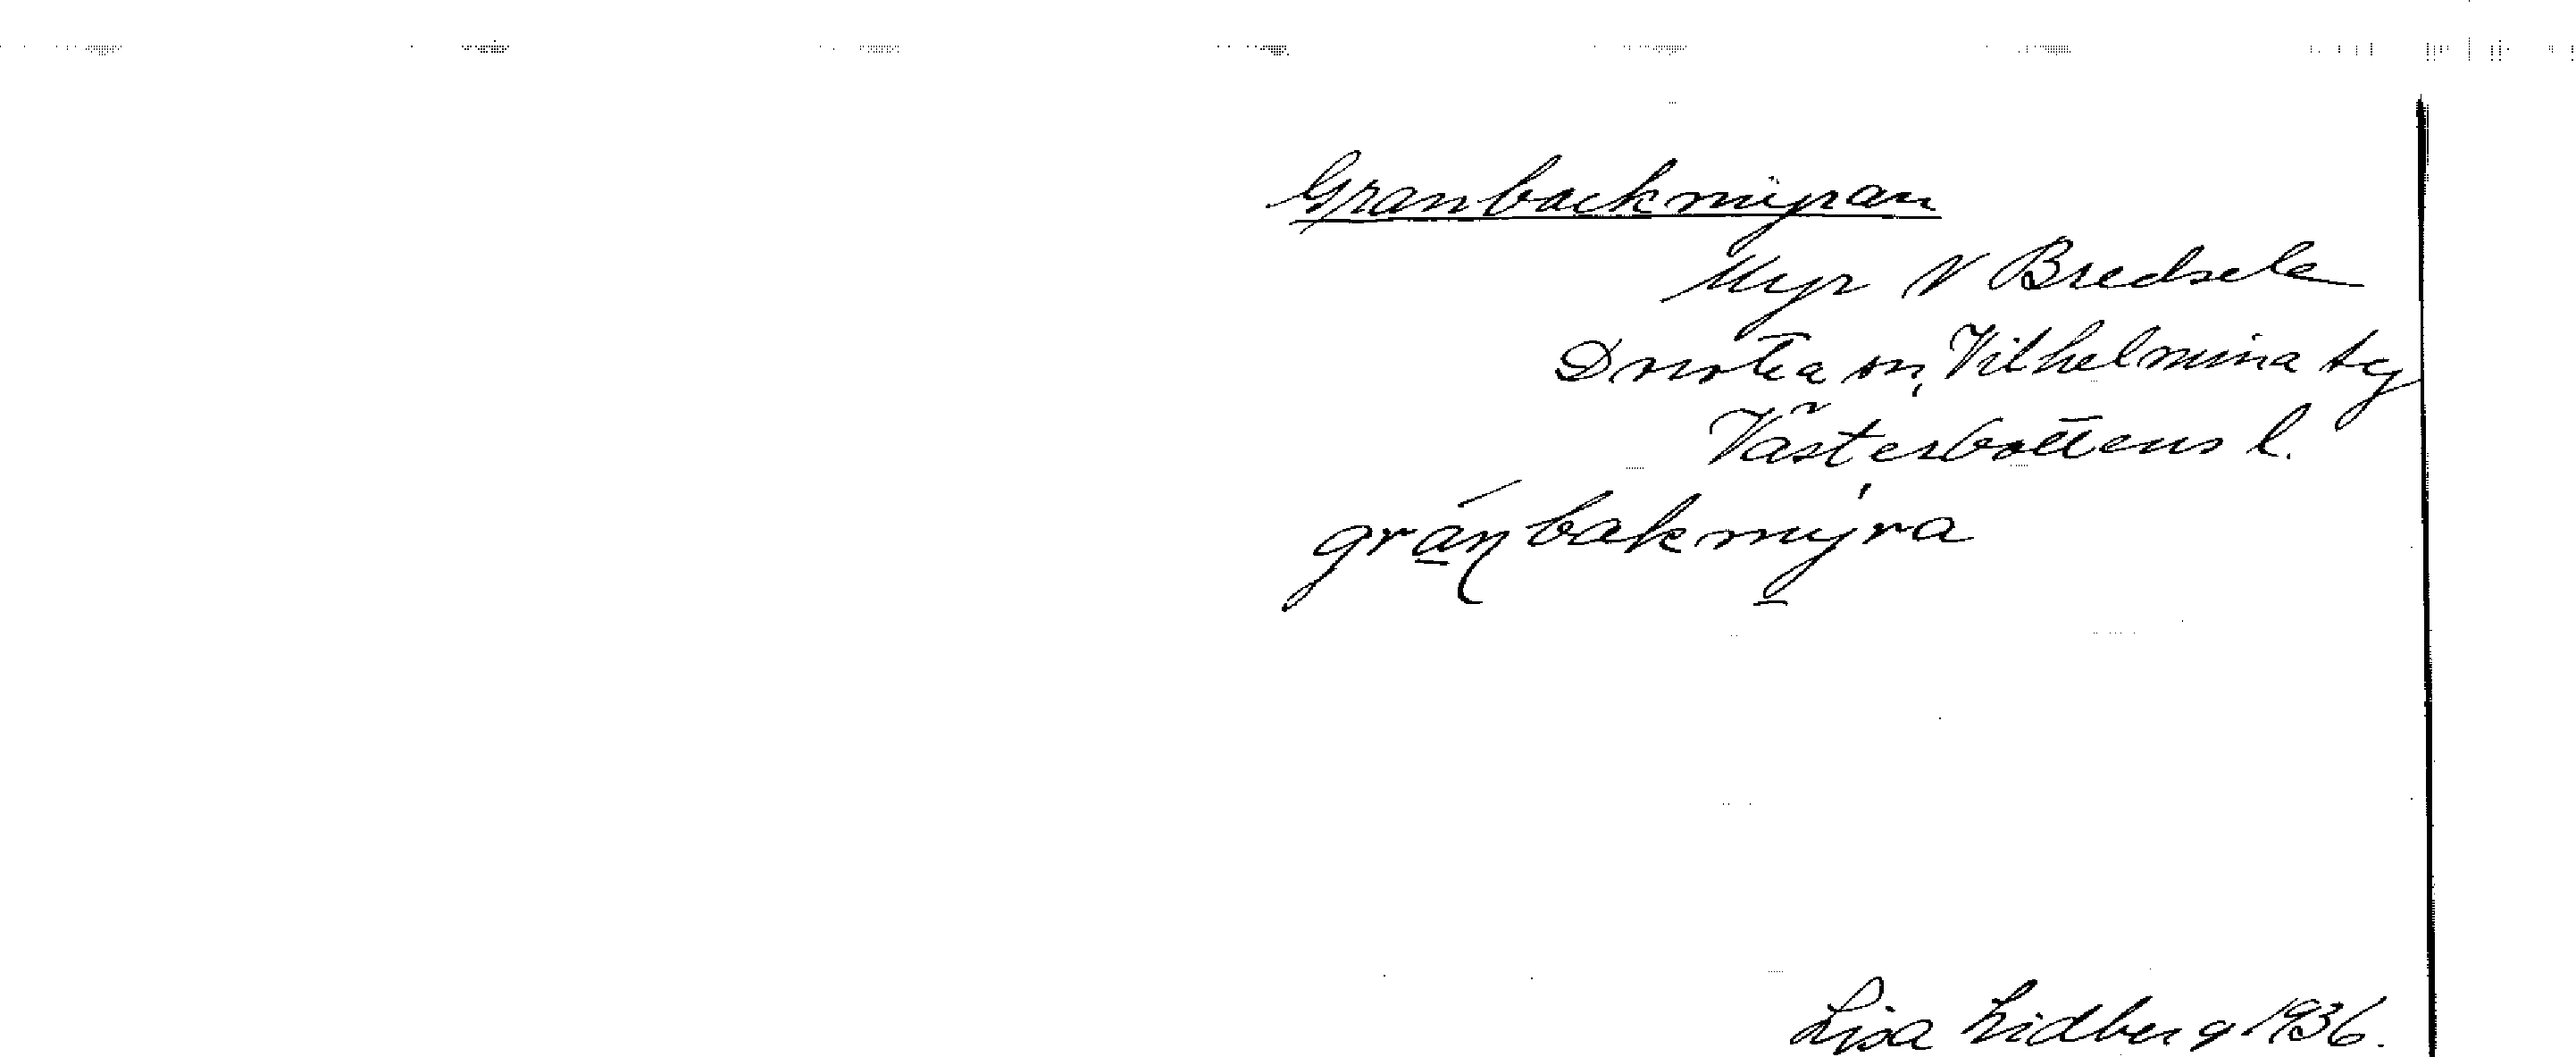 Granbackmyran
Myr N Bredsele
Dorotea sn, Vilhelmina tg
Västerbottens l.
gránbakmy̱ra
Lisa Lidberg 1936.